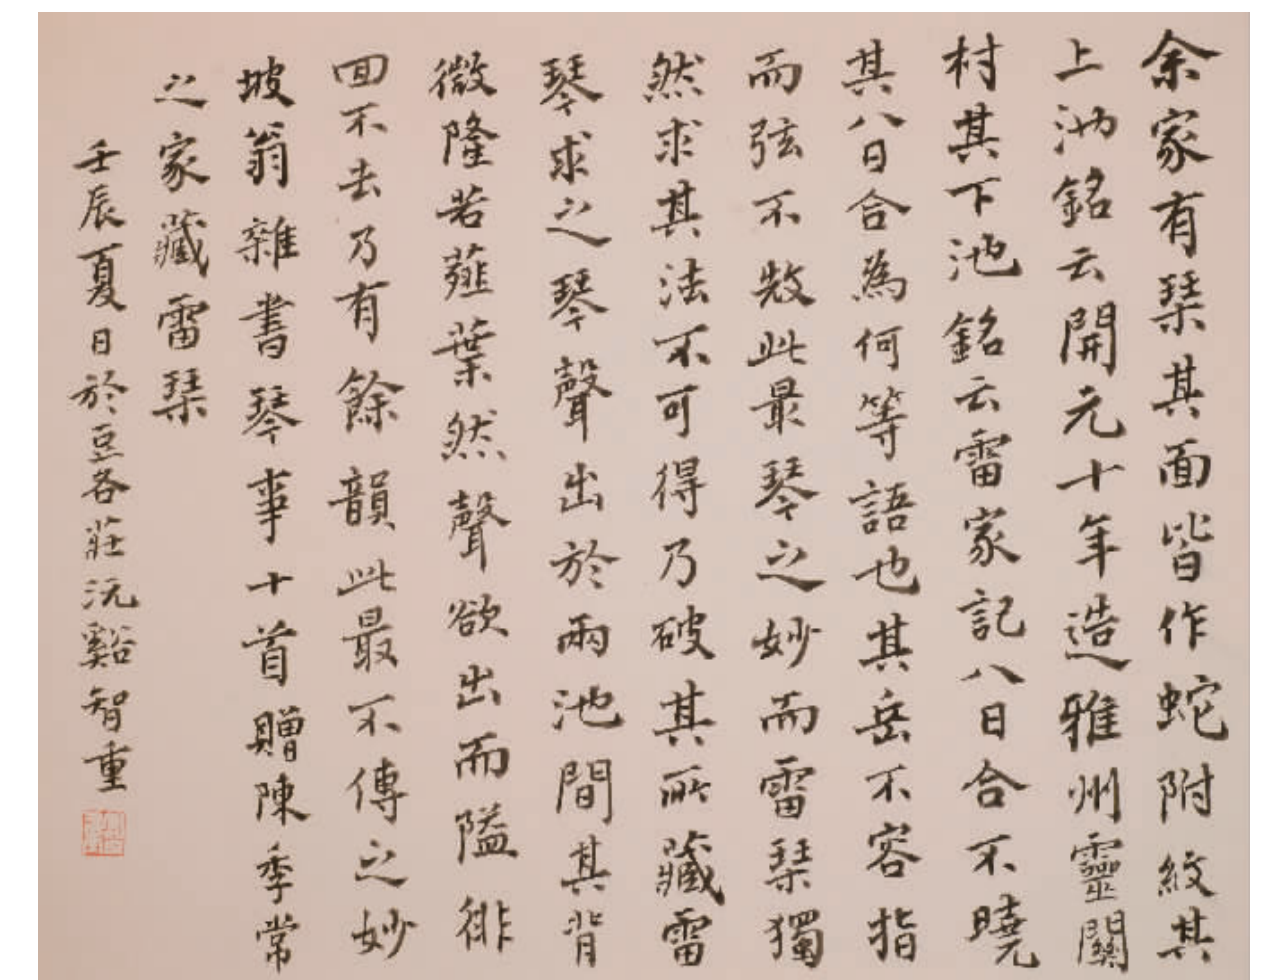 余家有琹其面皆作蛇附紋其
上池銘云開元十年造雅州靈關
村其下池銘云雷家記八日合不曉
其八日合為何等語也其岳不容指
而弦不㪇此最琴之妙而雷琹獨
然求其法不可得乃破其所藏雷
琴求之琴聲出於兩池間其背
微隆若薤葉然聲欲出而隘徘
回不去乃有餘韻此最不傳之妙
坡翁雜書琴事十首贈陳季常
之家藏雷琹
壬辰夏日於豆各莊沅谿智重